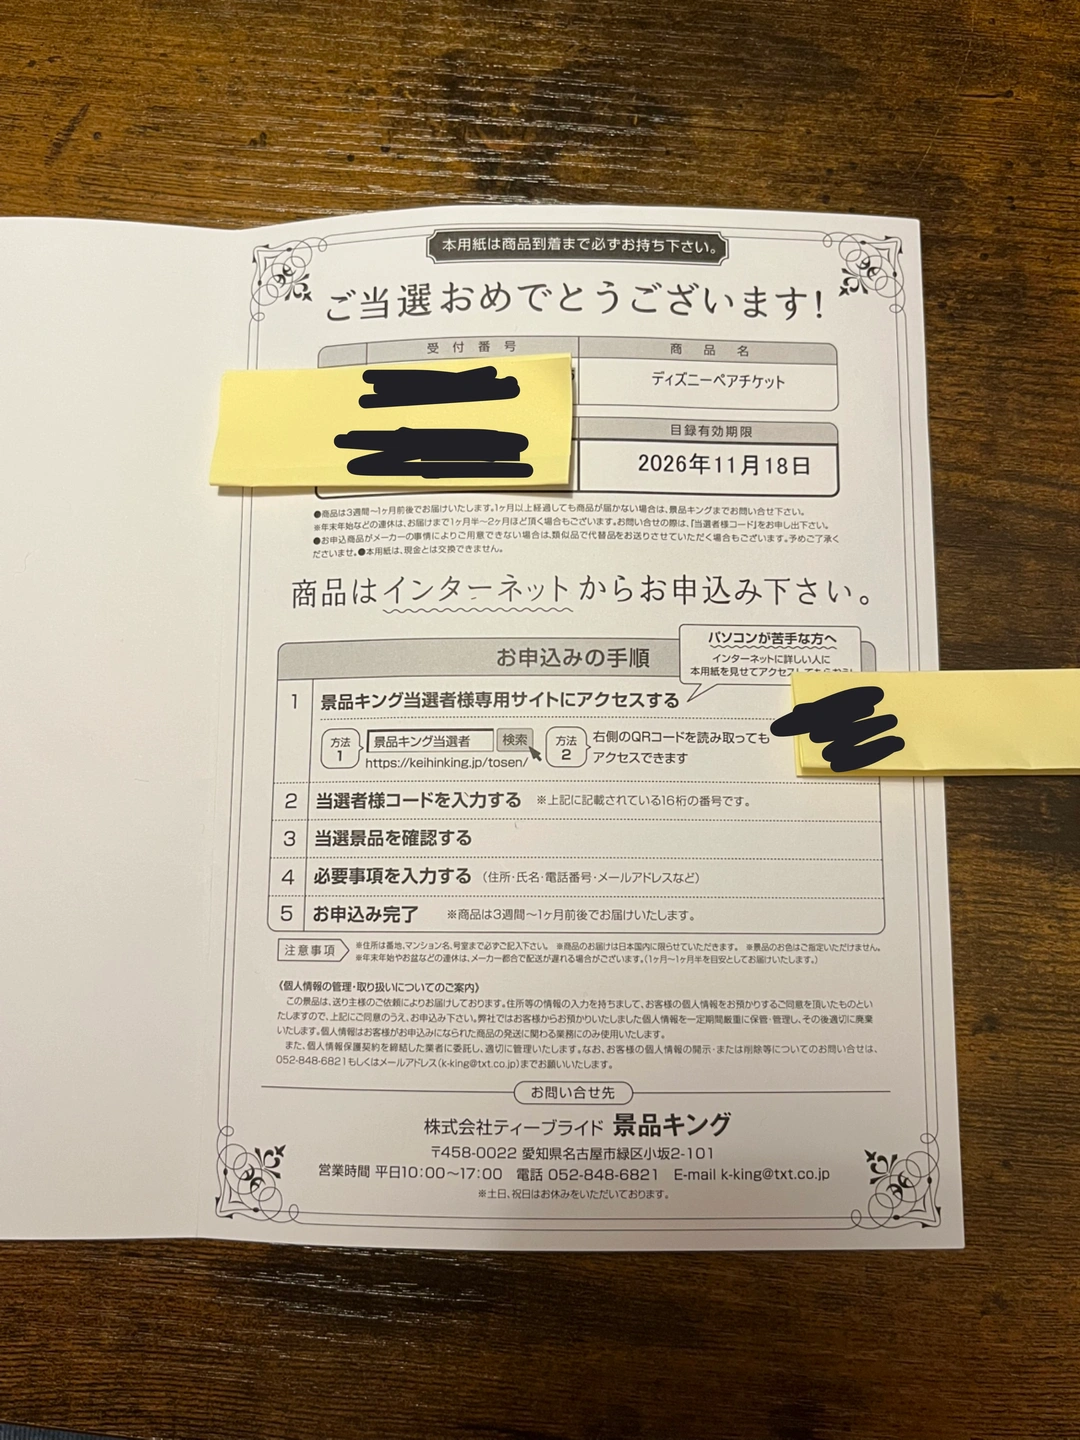 本用紙は商品到着まで必ずお持ち下さい。
ご当選おめでとうございます!
受付番号
商品名
ディズニーペアチケット
目録有効期限
2026年11月18日
●商品は3週間〜1ヶ月前後でお届けいたします。1ヶ月以上経過しても商品が届かない場合は、景品キングまでお問い合せ下さい。
※年末年始などの連休は、お届けまで1ヶ月半〜2ヶ月ほど頂く場合もございます。お問い合せの際は、「当選者様コード」をお申し出下さい。
●お申込商品がメーカーの事情によりご用意できない場合は、類似品で代替品をお送りさせていただく場合もございます。予めご了承く
ださいませ。●本用紙は、現金とは交換できません。
商品はインターネットからお申込み下さい。
お申込みの手順
パソコンが苦手な方へ
インターネットに詳しい人に
本用紙を見せてアクセスしてもらおう!
1 景品キング当選者様専用サイトにアクセスする
方法1 景品キング当選者 検索
https://keihinking.jp/tosen/
方法2 右側のQRコードを読み取っても
アクセスできます
2 当選者様コードを入力する ※上記に記載されている16桁の番号です。
3 当選景品を確認する
4 必要事項を入力する (住所・氏名・電話番号・メールアドレスなど)
5 お申込み完了 ※商品は3週間〜1ヶ月前後でお届けいたします。
注意事項 ※住所は番地、マンション名、号室まで必ずご記入下さい。 ※商品のお届けは日本国内に限らせていただきます。 ※景品のお色はご指定いただけません。
※年末年始やお盆などの連休は、メーカー都合で配送が遅れる場合がございます。(1ヶ月〜1ヶ月半を目安としてお届けいたします。)
《個人情報の管理・取り扱いについてのご案内》
この景品は、送り主様のご依頼によりお届けしております。住所等の情報の入力を持ちまして、お客様の個人情報をお預かりするご同意を頂いたものとい
たしますので、上記にご同意のうえ、お申込み下さい。弊社ではお客様からお預かりいたしました個人情報を一定期間厳重に保管・管理し、その後適切に廃棄
いたします。個人情報はお客様がお申込みになられた商品の発送に関わる業務にのみ使用いたします。
また、個人情報保護契約を締結した業者に委託し、適切に管理いたします。なお、お客様の個人情報の開示・または削除等についてのお問い合せは、
052-848-6821もしくはメールアドレス(k-king@txt.co.jp)までお願いいたします。
お問い合せ先
株式会社ティーブライド 景品キング
〒458-0022 愛知県名古屋市緑区小坂2-101
営業時間 平日10:00〜17:00 電話 052-848-6821 E-mail k-king@txt.co.jp
※土日、祝日はお休みをいただいております。